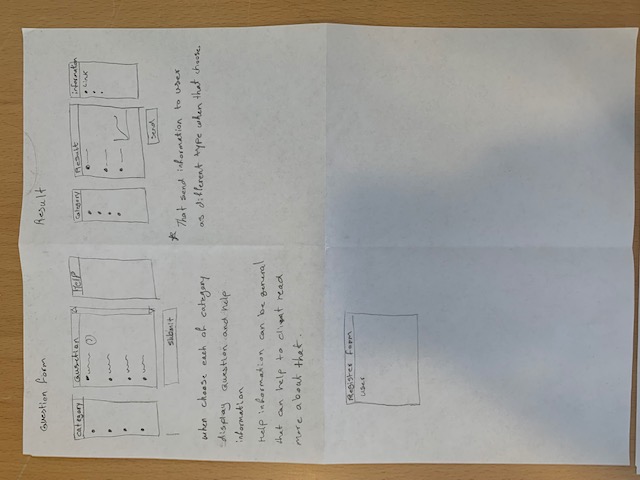 Question form
category
Qusetion
Help
?
submit
when choose each of category
display question and help
information
Help information can be general
that can help to client read
more about that.
Result
category
Result
information
Link
send
* That send information to user
as different type when that choose.
Register form
user